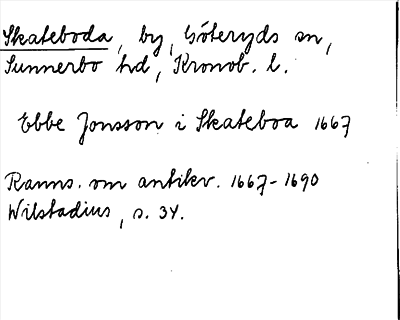 Skateboda, by, Göteryds sn,
Sunnerbo hd, Kronob. l.
Ebbe Jonsson i Skateboa 1667
Ranns. om antikv. 1667-1690
Wilstadius, s. 34.